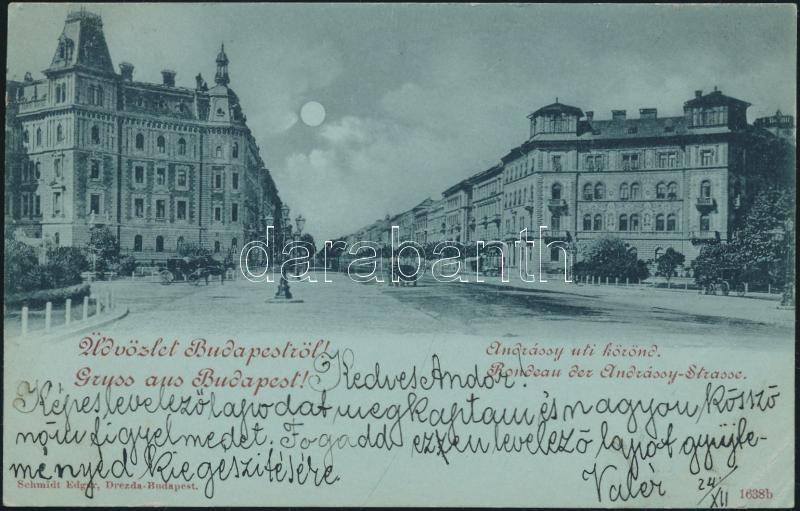 darabanth
Üdvözlet Budapestről!
Gruss aus Budapest!
Andrássy uti körönd.
Rondeau der Andrássy-Strasse.
Kedves Andor!
Képes levelező lapodat megkaptam és nagyon köszö
nöm figyelmedet. Fogadd ezzen levelező lapot gyűjte-
ményed kiegészítésére.
Valér 24/XII
Schmidt Edgar, Drezda-Budapest.
1638b